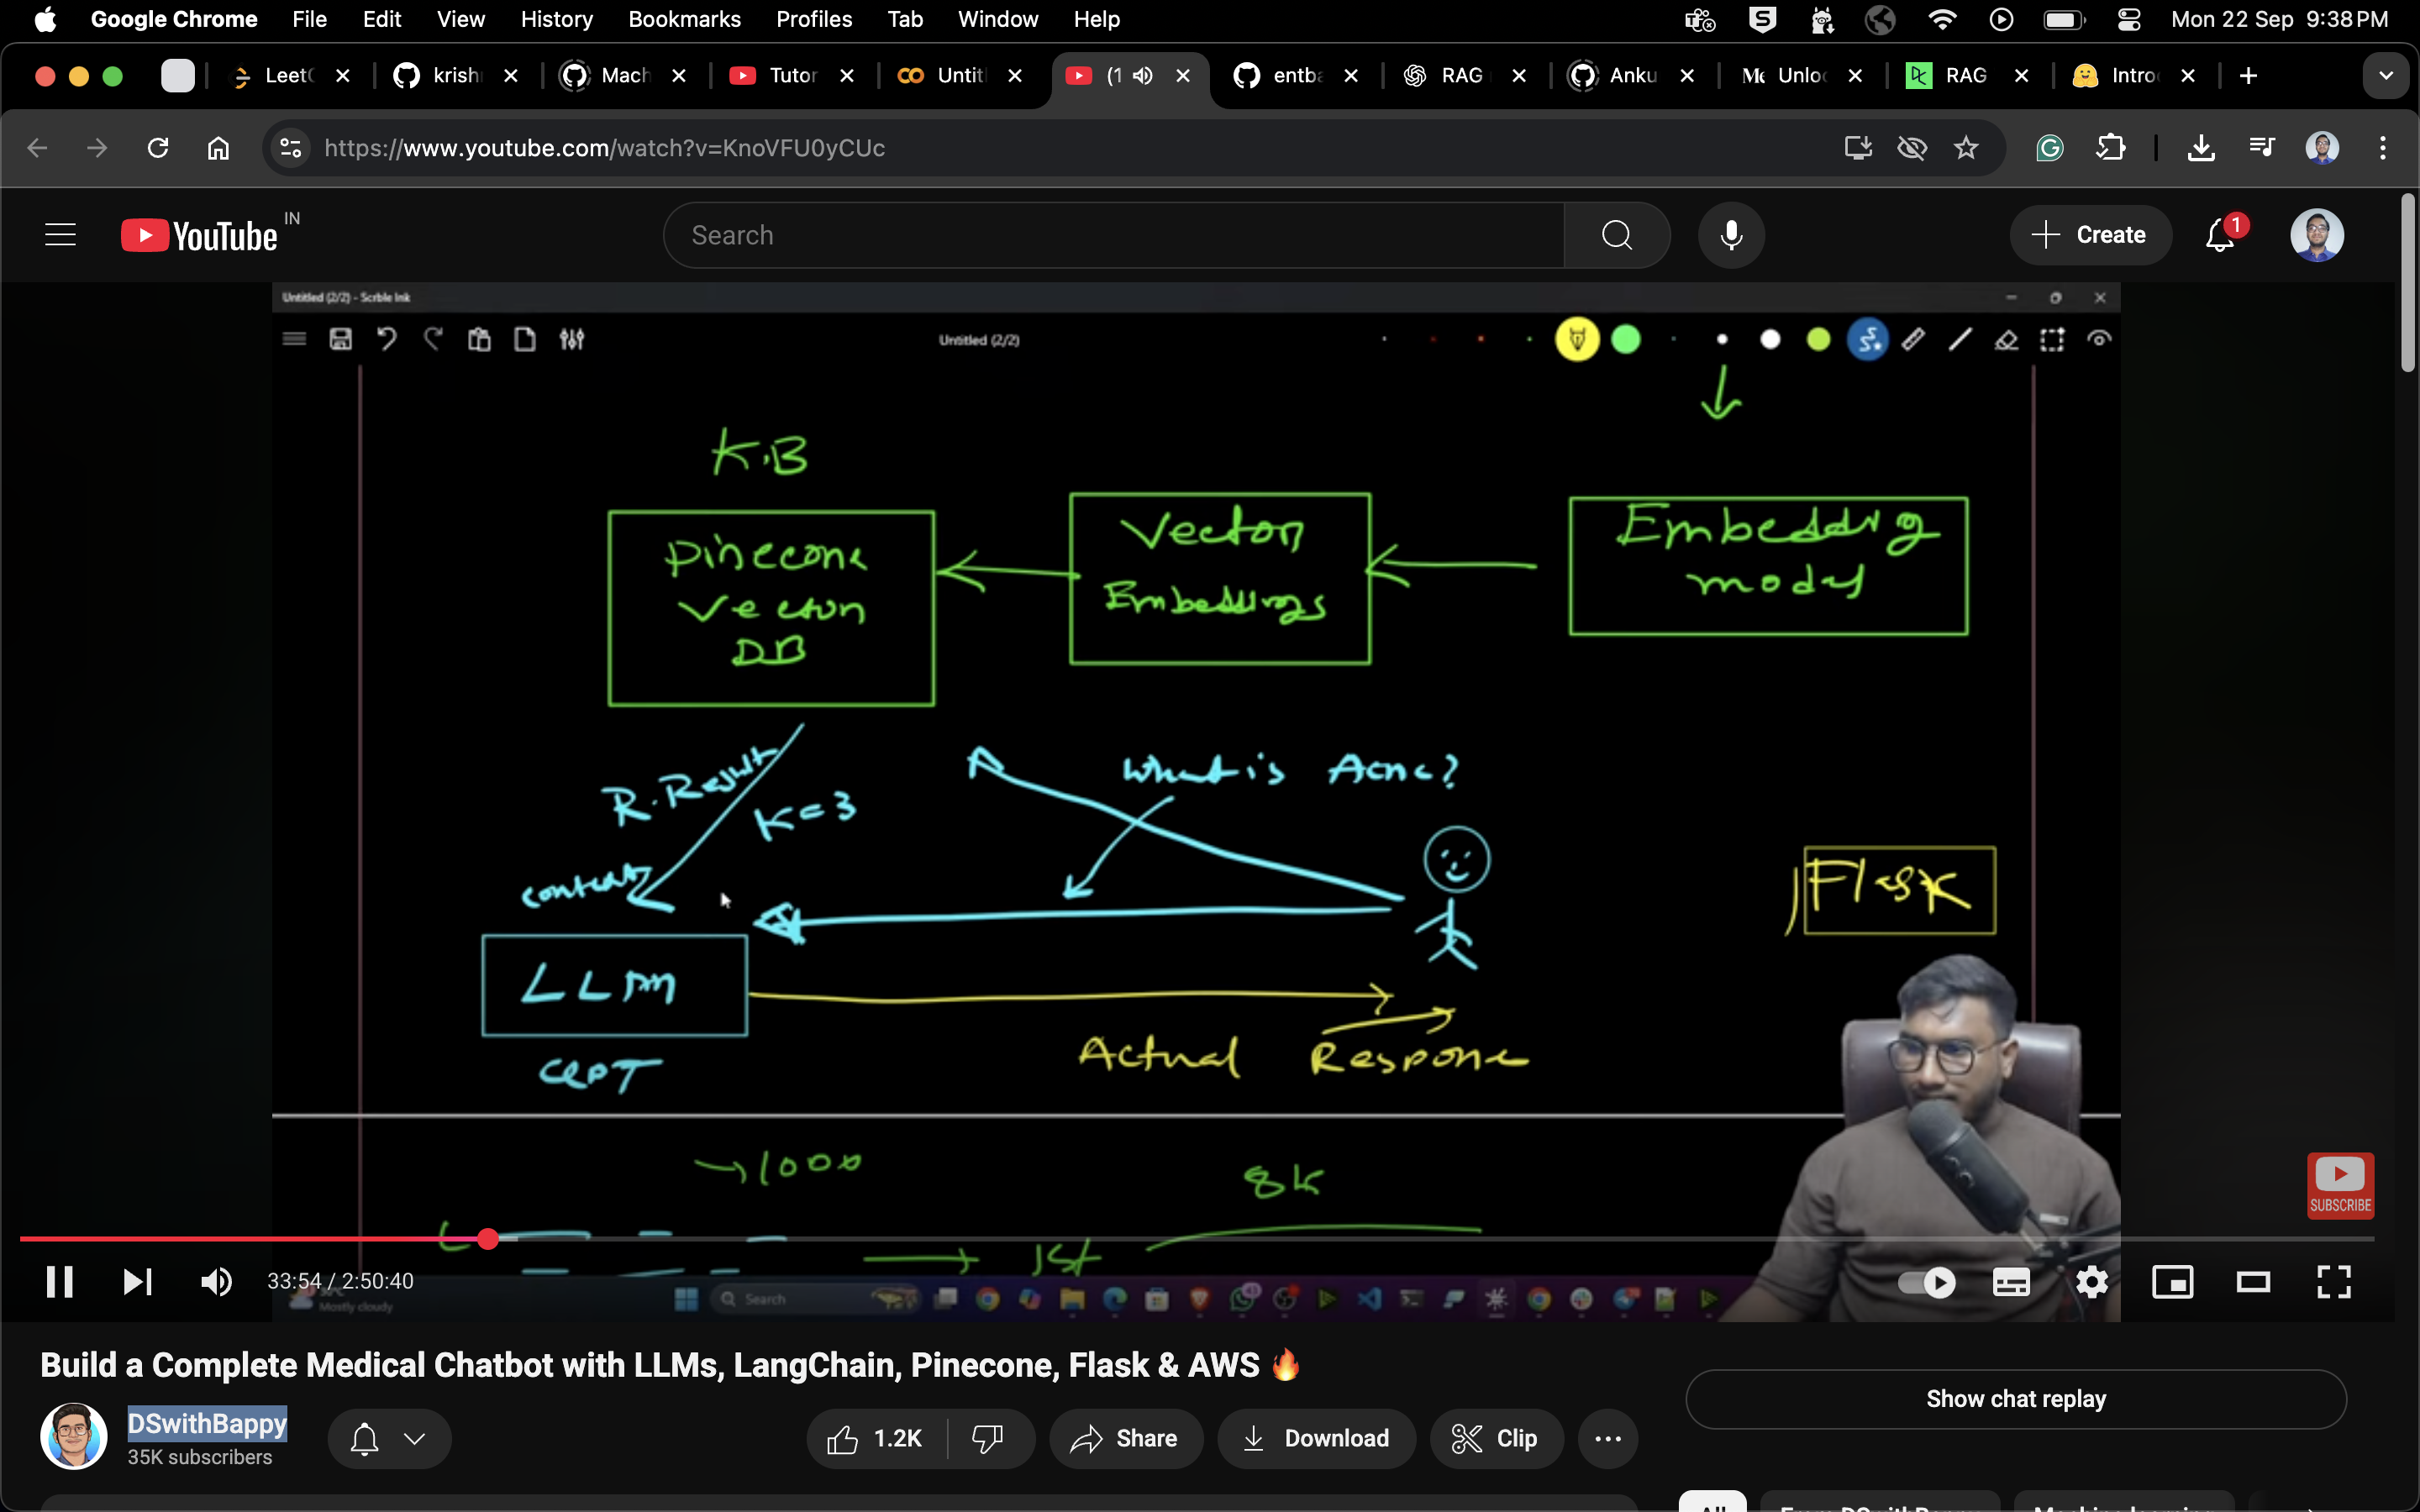 Google Chrome File Edit View History Bookmarks Profiles Tab Window Help Mon 22 Sep 9:38 PM
LeetC krish Mach Tutor Untitl (1 entba RAG Anku Unloc RAG Intro
https://www.youtube.com/watch?v=KnoVFU0yCUc
YouTube IN Search Create 1
Untitled (2/2) - Scrble Ink
Untitled (2/2)
K.B
Pinecone
Vector
DB
Vector
Embeddings
Embedding
model
R. Result
K=3
What is Acne?
context
Flask
LLM
GPT
Actual Response
1000
8k
1st
SUBSCRIBE
33:54 / 2:50:40
Mostly cloudy
Search
Build a Complete Medical Chatbot with LLMs, LangChain, Pinecone, Flask & AWS 🔥
Show chat replay
DSwithBappy
35K subscribers
1.2K Share Download Clip
All From DSwithBappy Machine learning